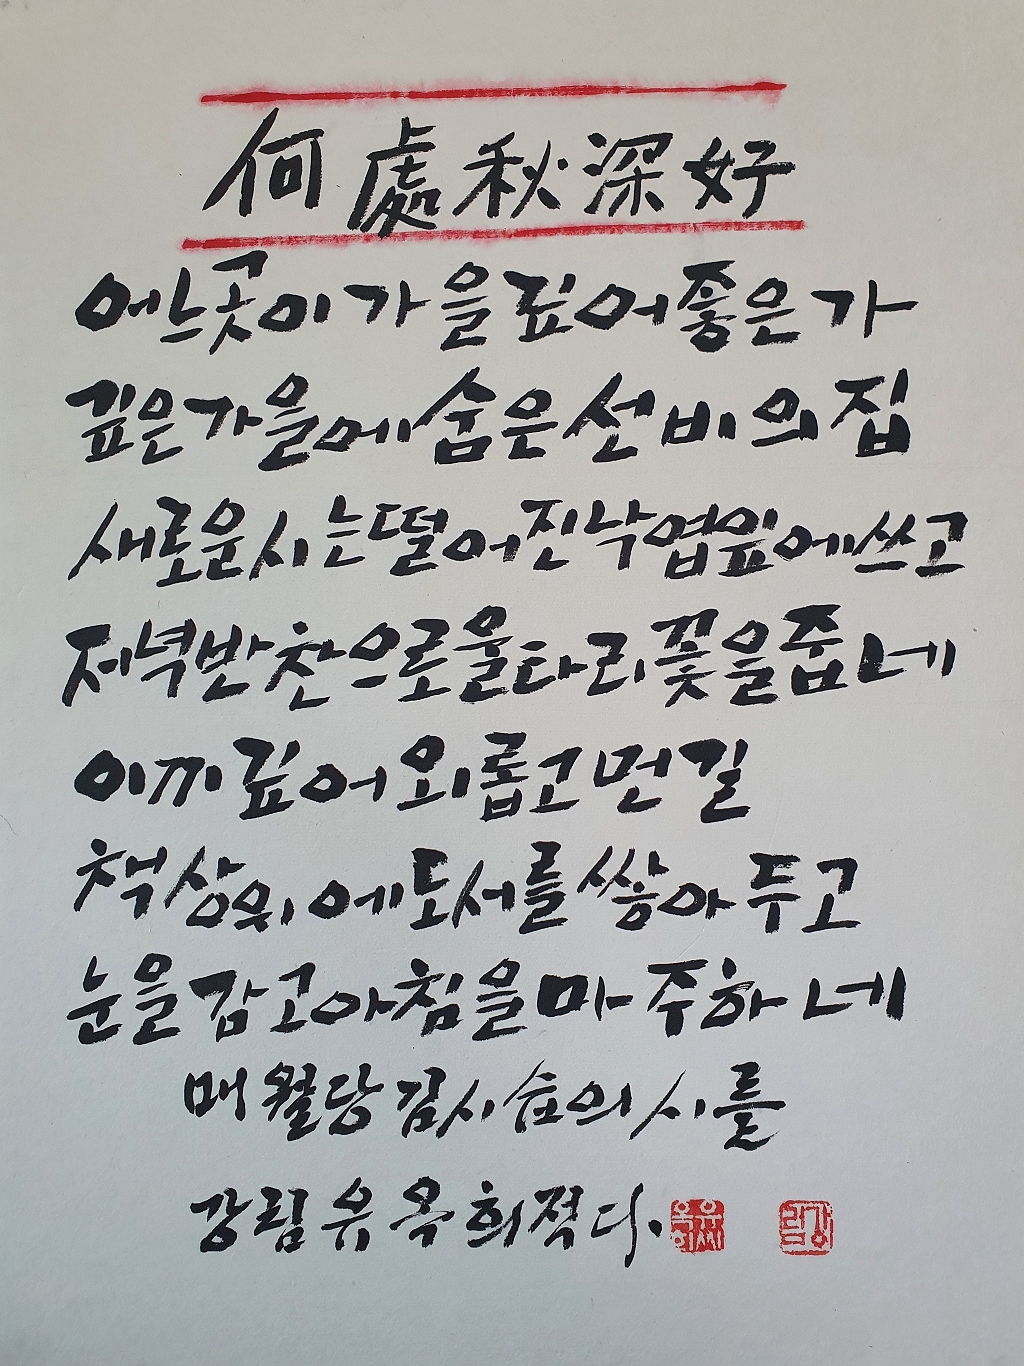 何處秋深好
어느곳이 가을 깊어 좋은가
깊은 가을에 숨은 선비의 집
새로운 시는 떨어진 낙엽잎에 쓰고
저녁 반찬으로 울타리 꽃을 줍네
이끼 깊어 외롭고 먼 길
책상위에 도서를 쌓아 두고
눈을 감고 아침을 마주하네
매월당 김시습의 시를
강림 유옥희 적다.
유옥희
강림